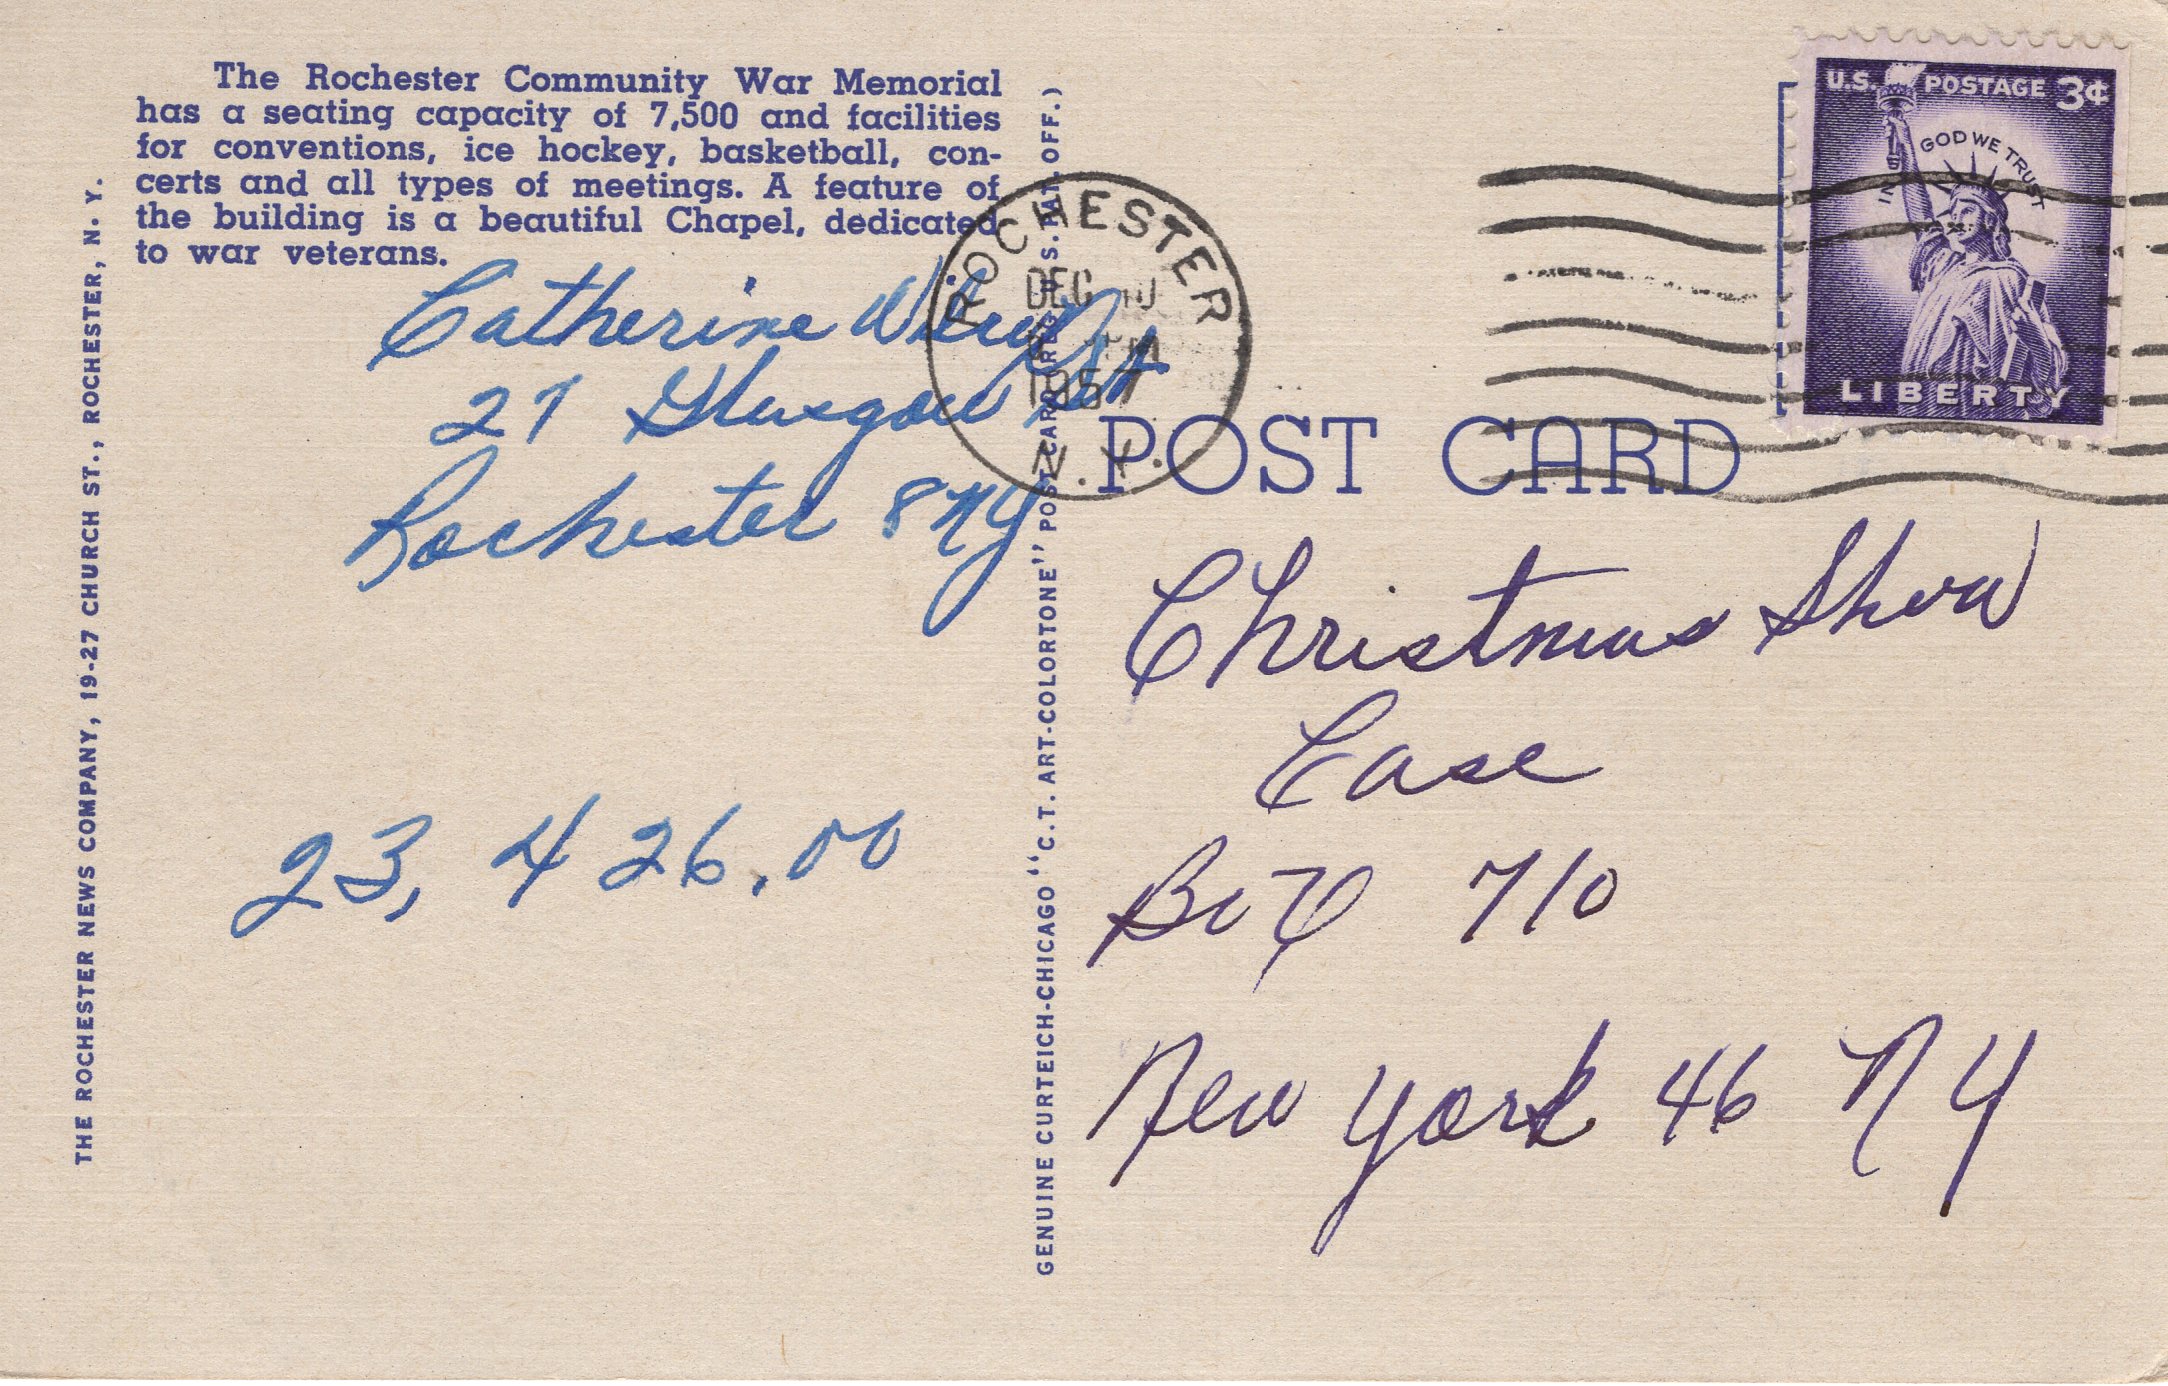 The Rochester Community War Memorial
has a seating capacity of 7,500 and facilities
for conventions, ice hockey, basketball, con-
certs and all types of meetings. A feature of
the building is a beautiful Chapel, dedicated
to war veterans.
THE ROCHESTER NEWS COMPANY, 19-27 CHURCH ST., ROCHESTER, N. Y.
Catherine
27 Glasgow St
Rochester 8 NY
23,426.00
GENUINE CURTEICH-CHICAGO "C. T. ART-COLORTONE" POST CARD (REG. U. S. PAT. OFF.)
ROCHESTER
DEC
PM
1957
N.Y.
U.S. POSTAGE 3¢
IN GOD WE TRUST
LIBERTY
POST CARD
Christmas Show
Case
Box 710
New York 46 NY